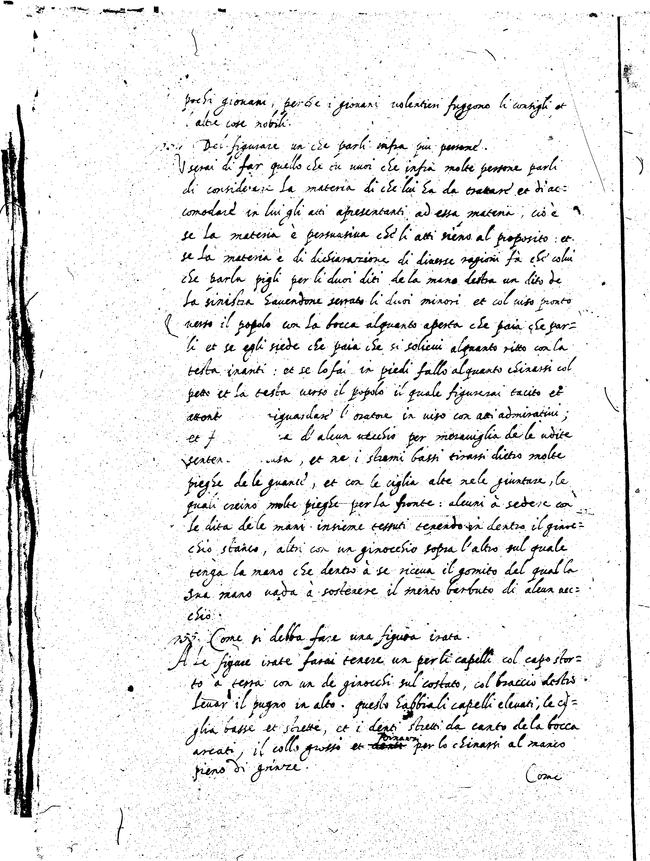 pochi giovani, perche i giovani volentieri fuggono li consigli et
l'altre cose nobili.
Del figurare un che parli infra piu persone.
Userai di far quello che tu vuoi che infra molte persone parli
di considerare la materia di che lui ha da trattare et di ac=
comodare in lui gli atti apresentanti ad essa materia, cio è
se la materia è persuasiva che li atti sieno al proposito: et
se la materia è di dichiarazione di diverse ragioni fa che colui
che parla pigli per li duoi diti de la mano destra un dito de
la sinistra havendone serrato li duoi minori et col viso pronto
verso il popolo con la bocca alquanto aperta che paia che par=
li et se egli siede che paia che si solievi alquanto ritto con la
testa inanti: et se lo fai in piedi fallo alquanto chinarsi col
petto et la testa verso il popolo il quale figurerai tacito et
attont riguardare l'oratore in viso con atti admirativi;
et f a d'alcun vecchio per meraviglia de le udite
senten , et ne i stremi bassi tirarsi dietro molte
pieghe de le guanci, et con le ciglia alte nele giunture, le
quali creino molte pieghe per la fronte: alcuni à sedere con
le dita dele mani insieme tessuti tenendovin dentro il ginoc=
chio stanco, altri con un ginocchio sopra l'altro sul quale
tenga la mano che dentro à se riceva il gomito del qual la
sua mano vada à sostenere il mento barbuto di alcun vec=
chio.
Come si debba fare una figura irata.
A le figure irate farai tenere un per li capelli col capo stor=
to à terra con un de ginocchi sul costato, col braccio destro
levar il pugno in alto. questo habbia li capelli elevati, le ci=
glia basse et strette, et i denti stretti da canto de la bocca
arcati, il collo grosso et per lo chinarsi al
pieno di grinze.
Come